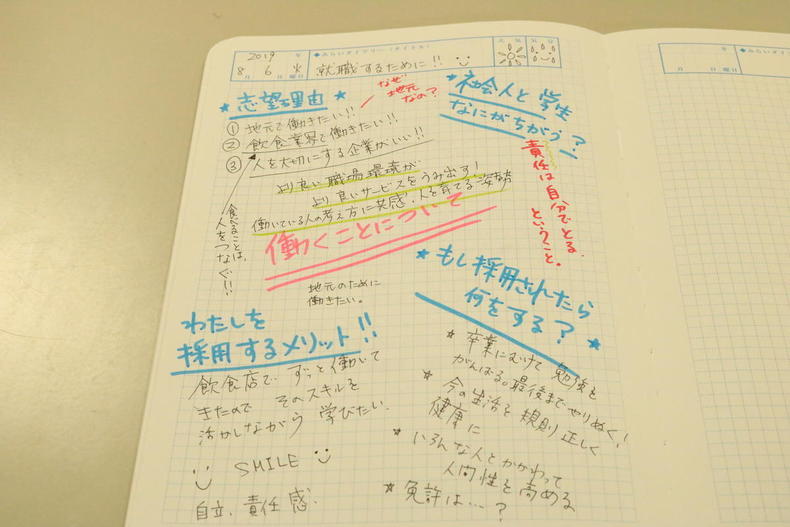 2019 年
◆みらいダイアリー(タイトル)
天気
気分
8月 6日 火曜日
就職するために!!
★志望理由★
なぜ
地元
なの?
① 地元で働きたい!!
② 飲食業界で働きたい!!
③ 人を大切にする企業がいい!!
より良い職場環境が
より良いサービスをうみ出す!
働いている人の考え方に共感・人を育てる姿勢
食べることは、
人をつなぐ!!
働くことについて
地元のために
働きたい。
わたしを
採用するメリット!!
飲食店で ずっと働いて
きたので そのスキルを
活かしながら 学びたい
SMILE
自立、責任感.
★社会人と学生
なにがちがう?★
責任は自分でとる
ということ。
★もし採用されたら
何をする?★
★ 卒業にむけて 勉強を
がんばる。最後までやりぬく!
★ 今の生活を 規則正しく
健康に
★ いろんな人とかかわって
人間性を高める
★ 免許は…?
年
月 日 曜日